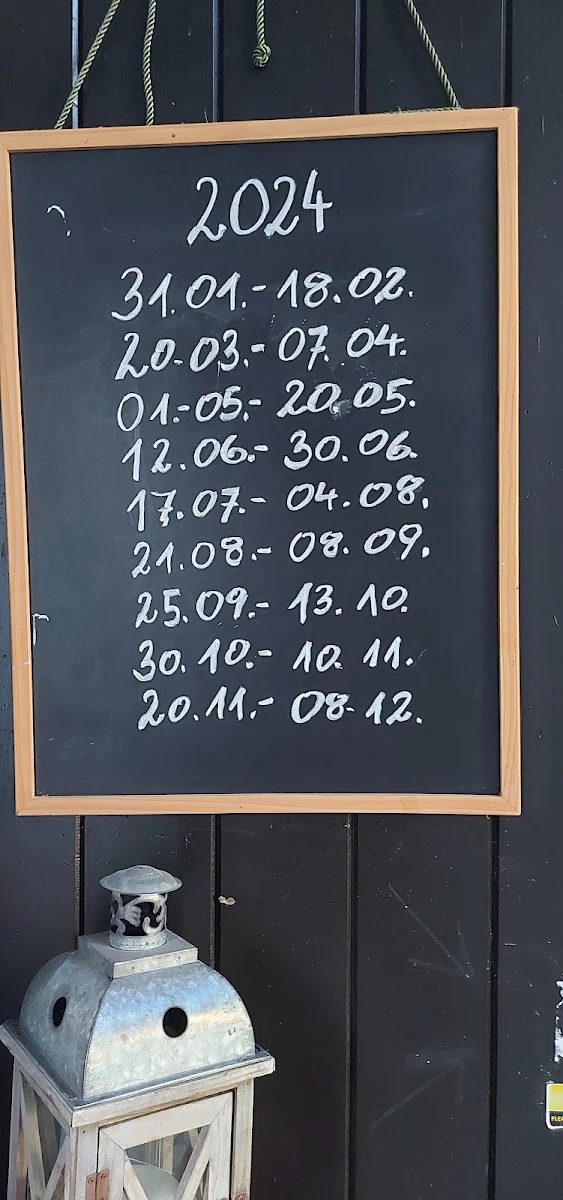 2024
31.01.- 18.02.
20.03.- 07.04.
01.-05.- 20.05.
12.06.- 30.06.
17.07.- 04.08.
21.08.- 08.09.
25.09.- 13.10.
30.10.- 10.11.
20.11.- 08.12.